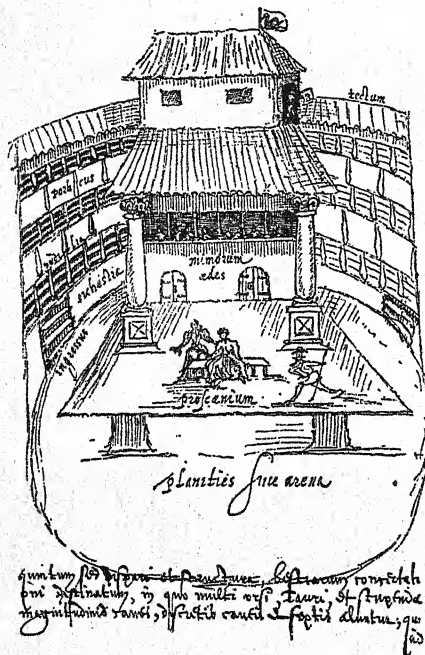 tectum
porticus
sedilia
orchestra
mimorum
ædes
ingressus
proscænium
planities siue arena
quintum sed dispari et structura, bestiarum concertati
oni destinatum, in quo multi ursi, Tauri, et stupendæ
magnitudinis canes, discretis caueis & septis aluntur, qui
ad